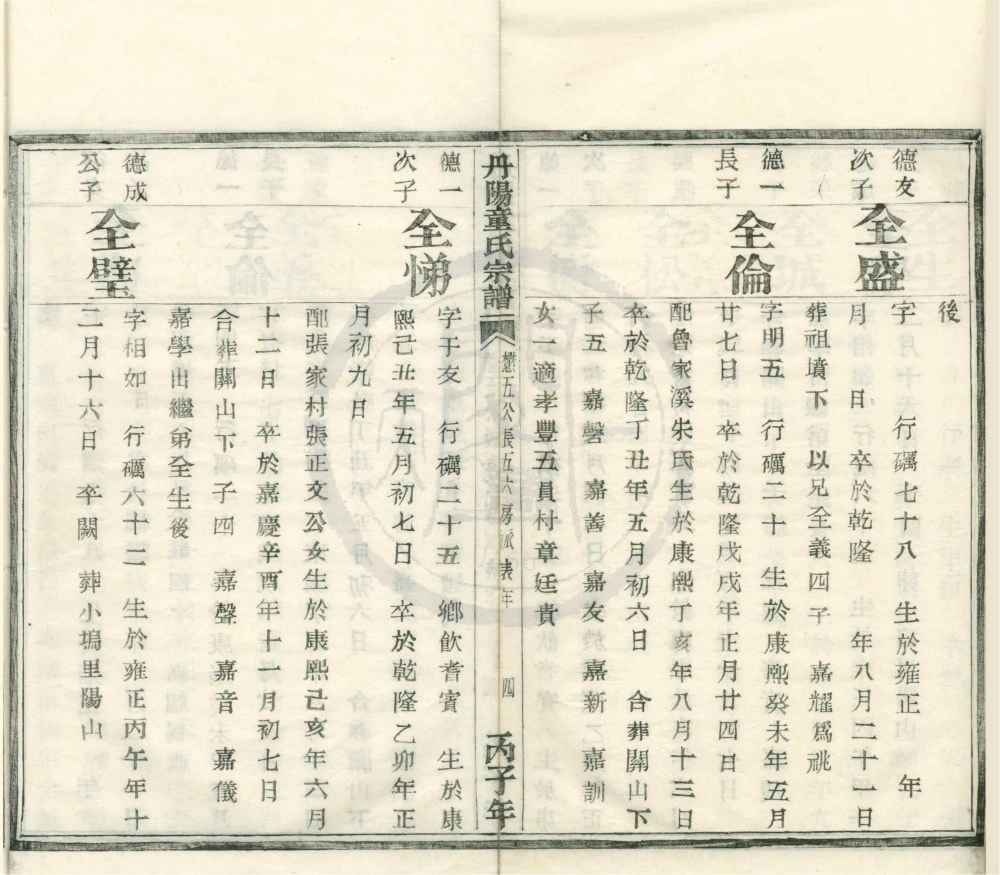 後
德友
次子
全盛
字　行礪七十八　生於雍正　年
月　日　卒於乾隆　年八月二十一日
葬祖墳下　以兄全義四子　嘉耀爲祧
德一
長子
全倫
字明五　行礪二十　生於康熙癸未年五月
廿七日　卒於乾隆戊戌年正月廿四日
配魯家溪朱氏生於康熙丁亥年八月十三日
卒於乾隆丁丑年五月初六日　合葬關山下
子五　嘉謦　嘉善　嘉友　嘉新　嘉訓
女一適孝豐五員村章廷貴
丹陽童氏宗譜
五公長五六房派表年
四
丙子年
德一
次子
全悌
字于友　行礪二十五　鄉飲耆賓　生於康
熙己丑年五月初七日　卒於乾隆乙卯年正
月初九日
配張家村張正文公女生於康熙己亥年六月
十二日　卒於嘉慶辛酉年十一月初七日
合葬關山下　子四　嘉聲　嘉音　嘉儀
嘉學出繼弟全生後
德成
公子
全璧
字相如　行礪六十三　生於雍正丙午年十
二月十六日　卒闕　葬小塢里陽山